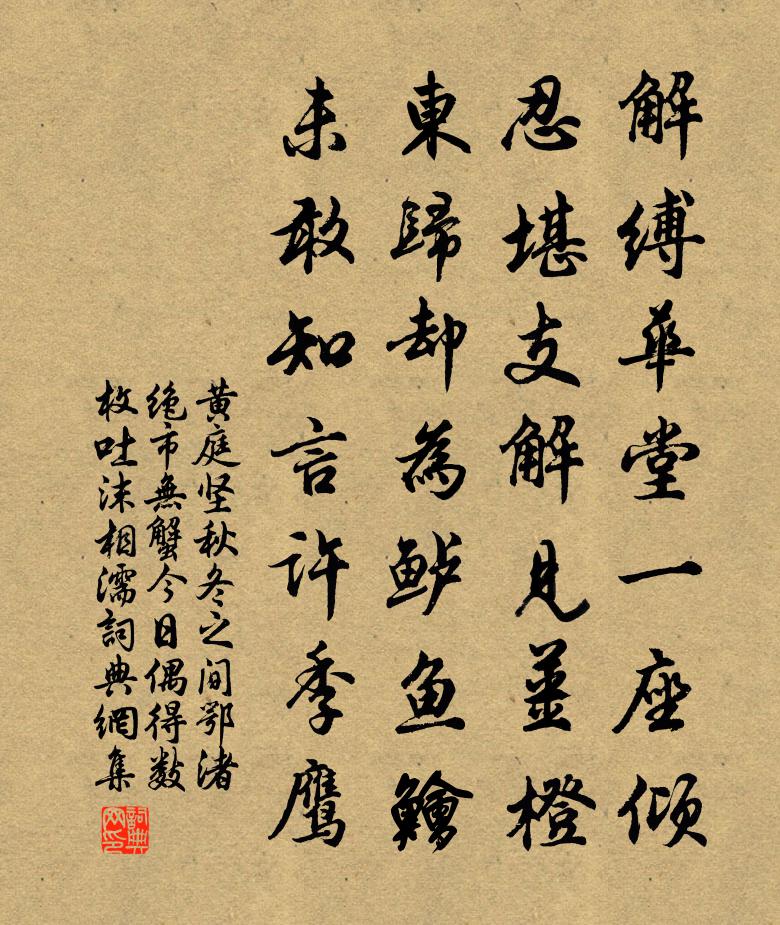 解縛華堂一座傾
忍堪支解見薑橙
東歸却為鲈鱼鱠
未敢知言許季鹰
黄庭坚秋冬之间鄂渚
绝市無蟹今日偶得数
枚吐沫相濡詞典網集
詞典网印